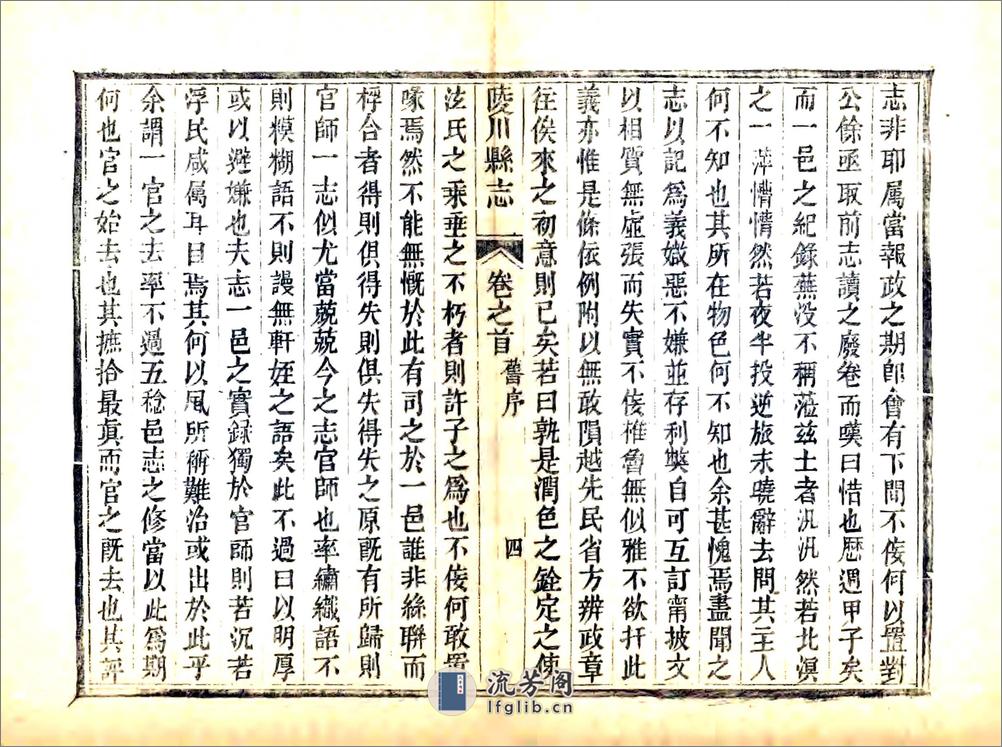 志非耶属當報政之期郎會有下問不侫何以置對
公餘亟取前志讀之廢卷而嘆曰惜也歴週甲子矣
而一邑之紀錄蕪沒不稱蒞兹土者汎汎然若北溟
之一萍懵懵然若夜半投逆旅未曉辭去問其主人
何不知也其所在物色何不知也余甚愧焉盡聞之
志以記爲義媺惡不嫌並存利獘自可互訂甯披文
以相質無虚張而失實不侫椎魯無似雅不欲扞此
義亦惟是條依例附以無敢隕越先民省方辨政章
往俟來之初意則已矣若曰孰是潤色之銓定之使
陵川縣志
卷之首 舊序 四
泫氏之乘垂之不朽者則許子之爲也不侫何敢置
喙焉然不能無慨於此有司之於一邑誰非絲聯而
桴合者得則俱得失則俱失得失之原旣有所歸則
官師一志似尤當兢兢今之志官師也率繡織語不
則糢糊語不則謾無軒輊之語矣此不過曰以明厚
或以避嫌也夫志一邑之實録獨於官師則若沉若
浮民咸属耳目焉其何以風所稱難治或出於此乎
余謂一官之去率不過五稔邑志之修當以此爲期
何也官之始去也其摭拾最眞而官之旣去也其評
流芳阁
lfglib.cn